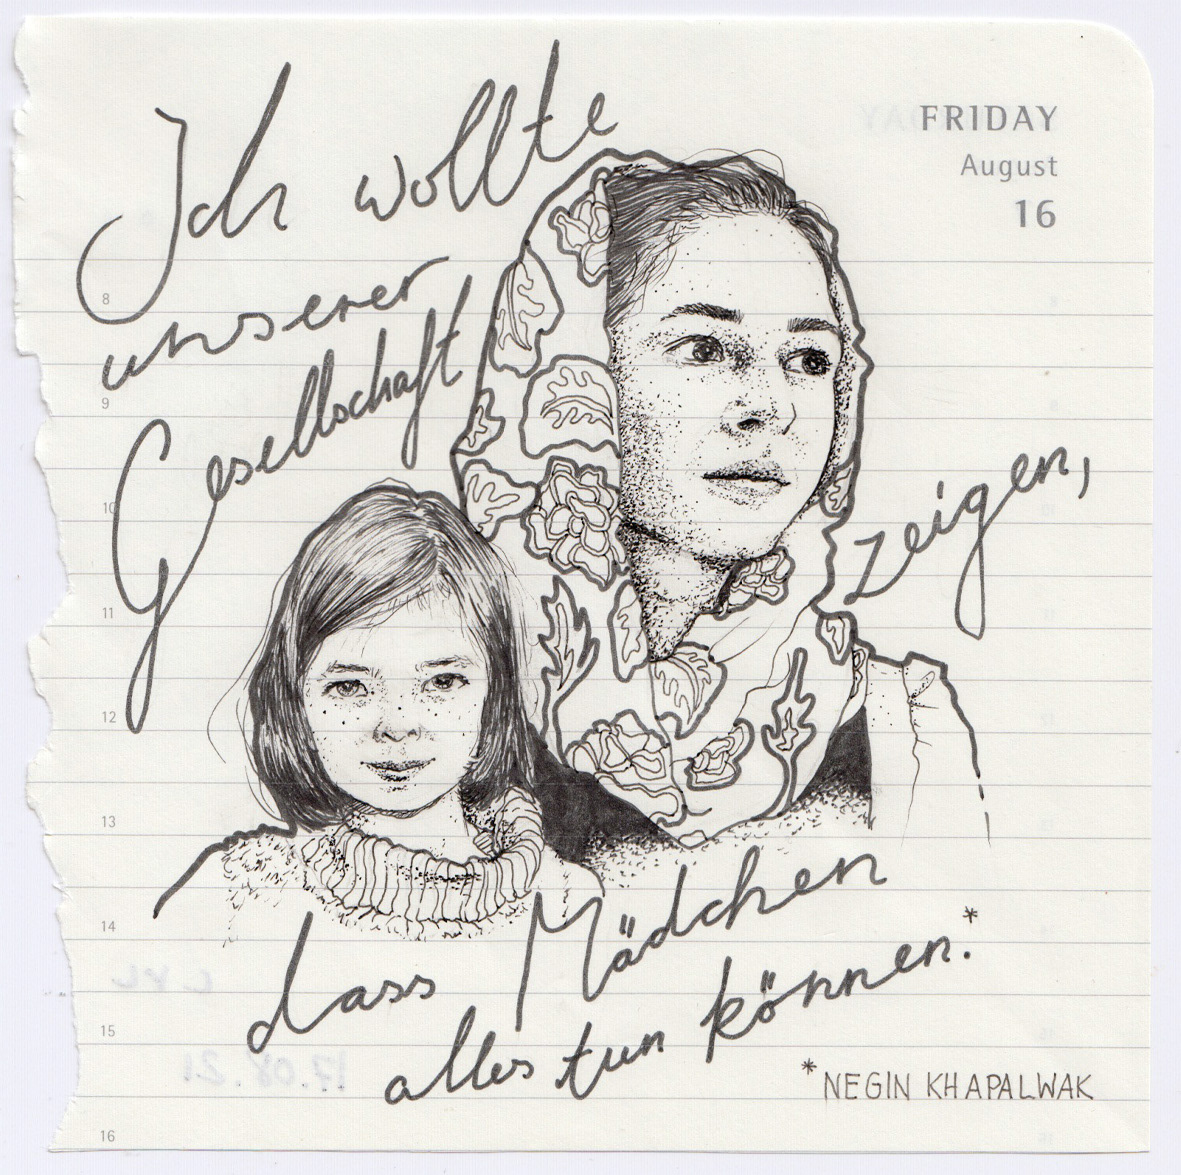 FRIDAY
August
16
Ich wollte
unserer
Gesellschaft
zeigen,
dass Mädchen
alles tun können.*
*NEGIN KHAPALWAK
8
9
10
11
12
13
14
15
16
17.08.21